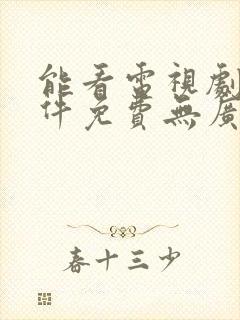 能看電視劇
件免費無廣
春十三少